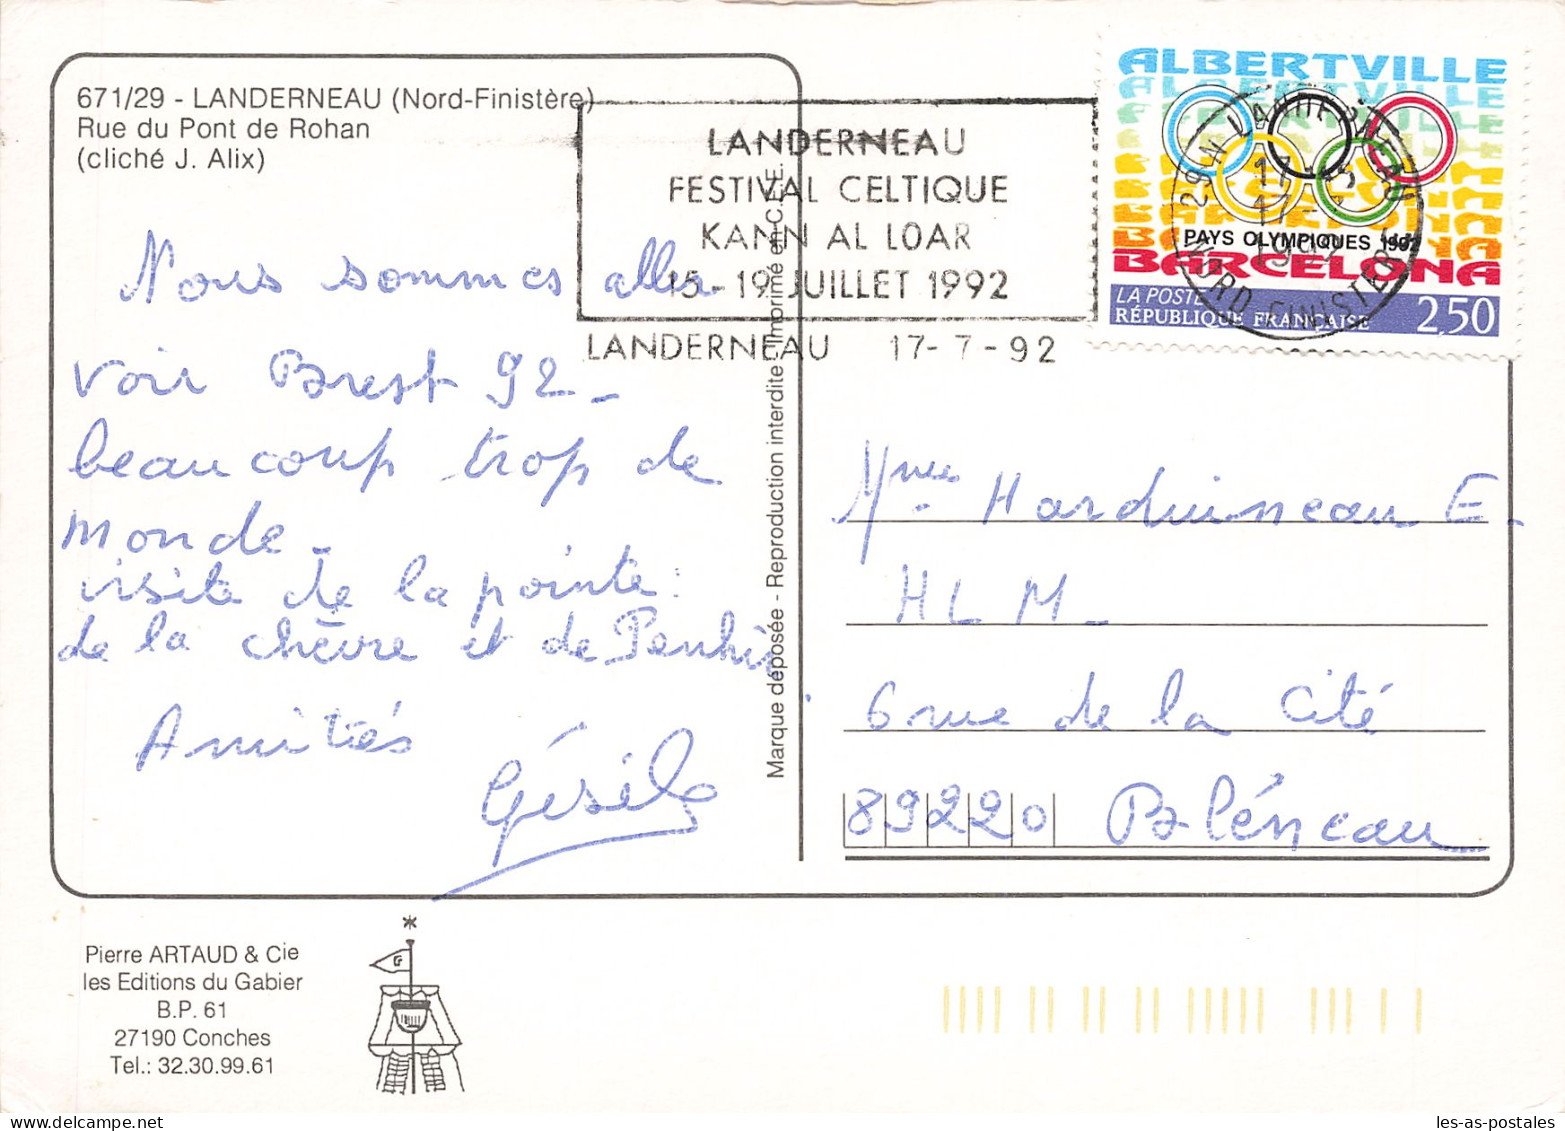 671/29 - LANDERNEAU (Nord-Finistère)
Rue du Pont de Rohan
(cliché J. Alix)
LANDERNEAU
FESTIVAL CELTIQUE
KANN AL LOAR
15-19 JUILLET 1992
LANDERNEAU 17-7-92
ALBERTVILLE
ALBERTVILLE
PAYS OLYMPIQUES 1992
BARCELONA
LA POSTE
RÉPUBLIQUE FRANÇAISE 2,50
29 N LANDERNEAU
NORD FINISTERE
Nous sommes allés
voir Brest 92 -
beaucoup trop de
monde -
visite de la pointe
de la chèvre et de Penhir.
Amitiés
Marque déposée - Reproduction interdite - Imprimé en C.E.E.
Mme Harduineau E.
HLM -
6 rue de la Cité
89220 Bléneau
Pierre ARTAUD & Cie
les Editions du Gabier
B.P. 61
27190 Conches
Tel.: 32.30.99.61
G
les-as-postales